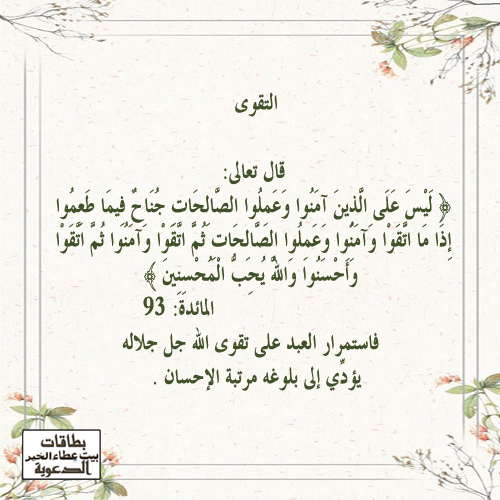 التقوى
قال تعالى:
﴿ لَيْسَ عَلَى الَّذِينَ آمَنُوا وَعَمِلُوا الصَّالِحَاتِ جُنَاحٌ فِيمَا طَعِمُوا
إِذَا مَا اتَّقَوْا وَآمَنُوا وَعَمِلُوا الصَّالِحَاتِ ثُمَّ اتَّقَوْا وَآمَنُوا ثُمَّ اتَّقَوْا
وَأَحْسَنُوا وَاللَّهُ يُحِبُّ الْمُحْسِنِينَ ﴾
المائدَةَ: 93
فاستمرار العبد على تقوى الله جل جلاله
يؤدِّي إلى بلوغه مرتبة الإحسان .
بطاقات
بيت عطاء الخير
الدعوية